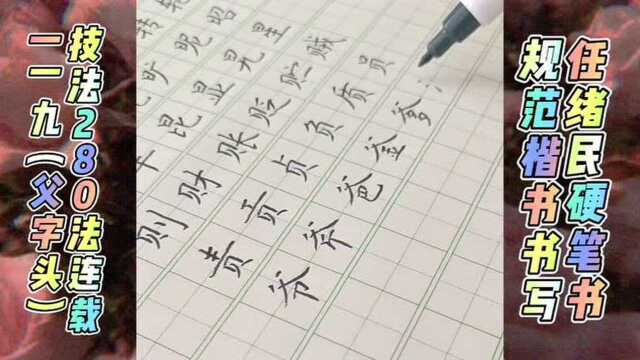 任绪民硬笔书
规范楷书书写
技法280法连载
一一九(父字头)
旷昵昭
昆显晃星
则财账贬贮贼
责贡贞负质员
爷爷爸釜爹